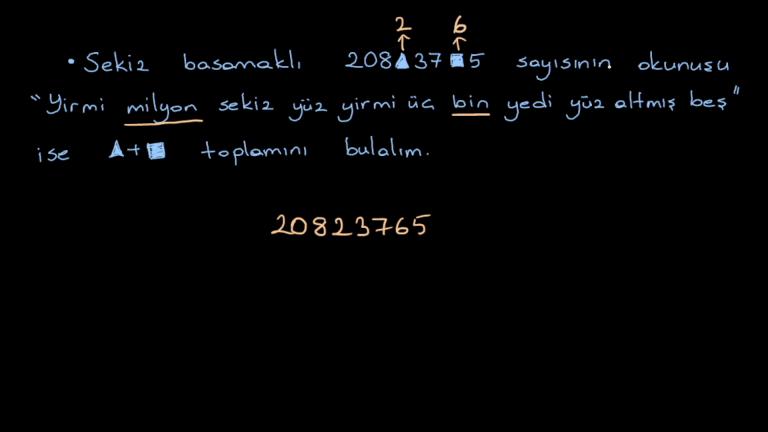 2 6
• Sekiz basamaklı 208▲37■5 sayısının okunuşu
"Yirmi milyon sekiz yüz yirmi üç bin yedi yüz altmış beş"
ise ▲+■ toplamını bulalım.
20823765